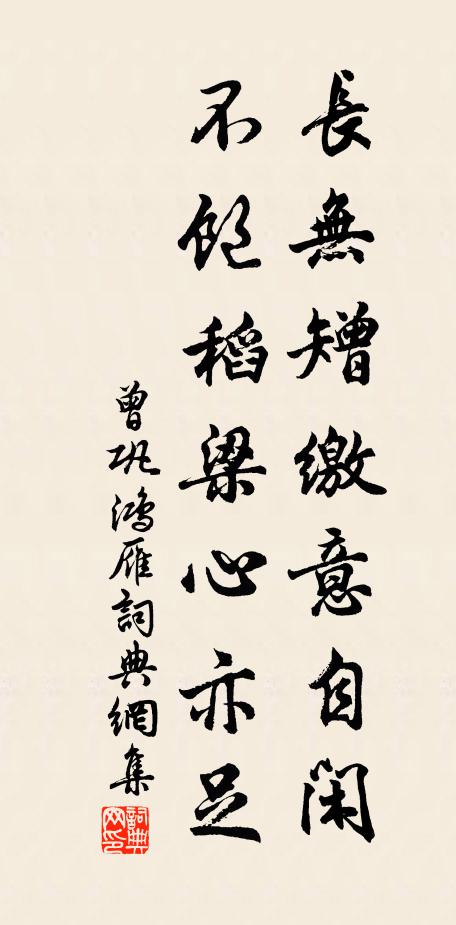 長無矰繳意自閑
不飽稻粱心亦足
曾巩鴻雁詞典網集
詞典網印